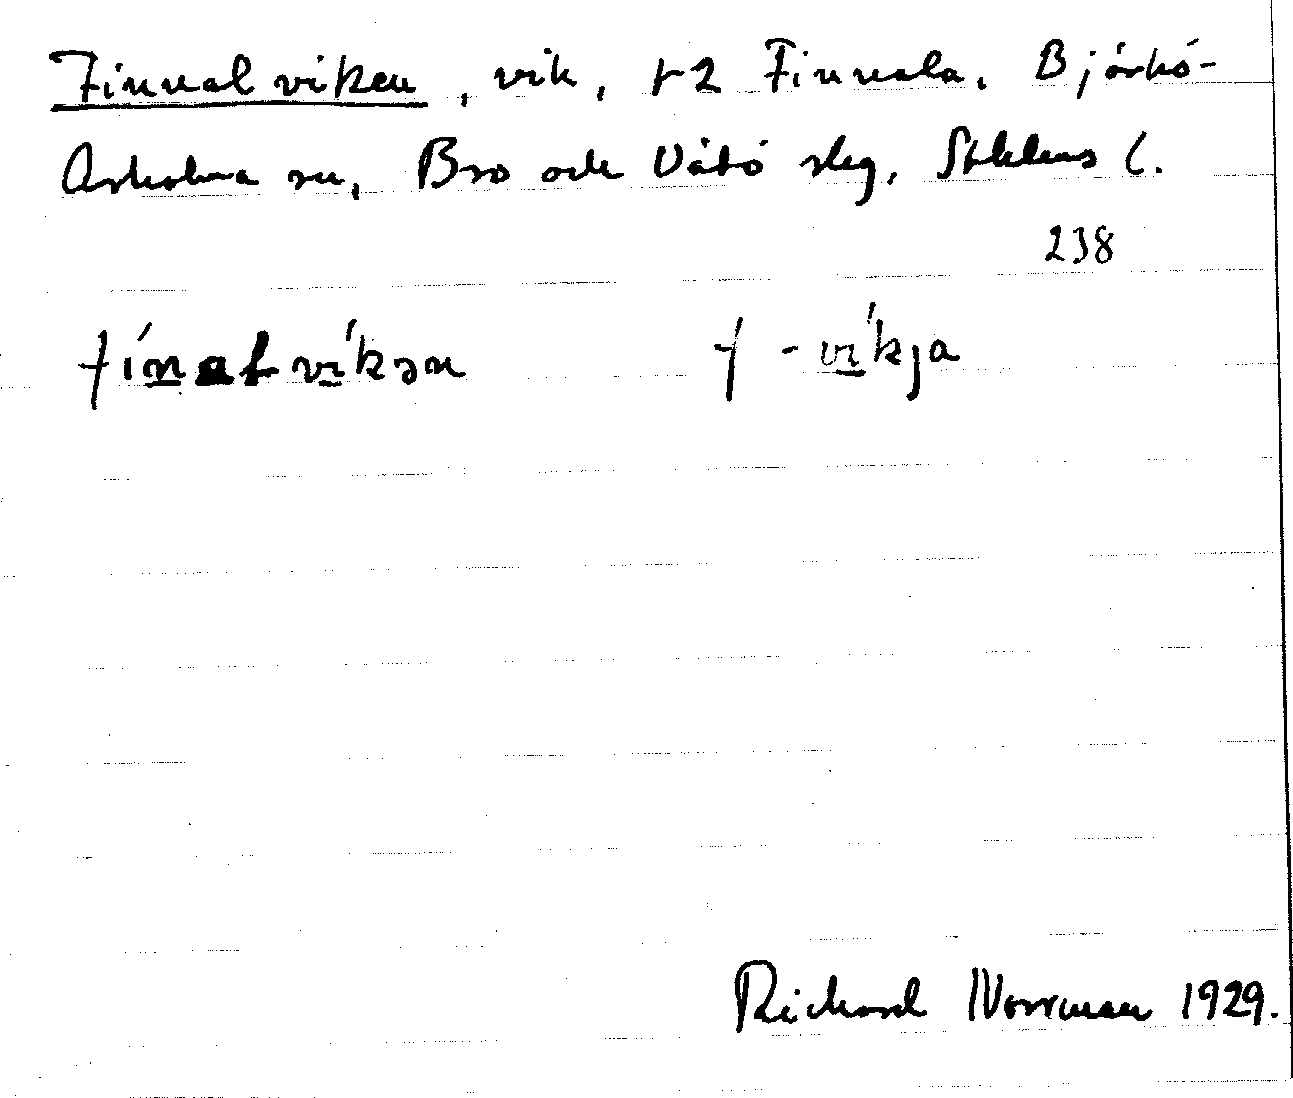 Finnalviken, vik, t 2 Finnala. Björkö-
Arholma sn, Bro och Vätö skg, Sthlms l.
238
fi´nalvi´kən f -vi´kja
Richard Norrman 1929.